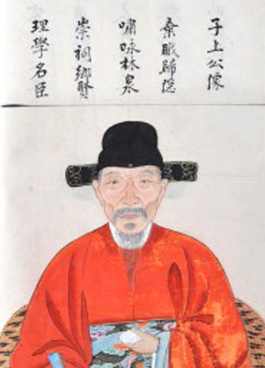 子上公像
棄職歸隱
嘯咏林泉
崇祠鄉賢
理學名臣